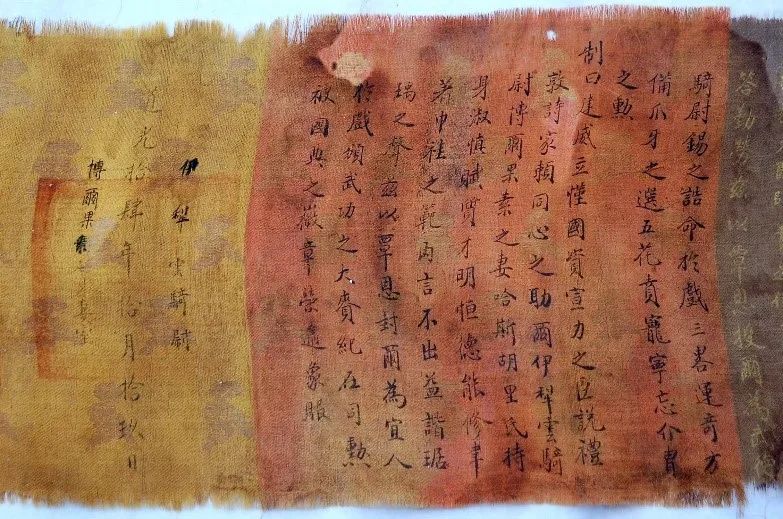 授爾為武德
騎尉錫之誥命於戲三畧運奇方
備爪牙之選五花賁寵寧忘介冑
之勲
制曰建威立懂國賞宣力之臣說禮
敦詩家賴同心之助爾伊犁雲騎
尉博爾果素之妻哈斯胡里氏持
身淑慎賦質才明恒德能修聿
著巾鞋之範內言不出益諧琚
瑞之聲茲以覃恩封爾為宜人
於戲頌武功之大賚紀在司勲
被國典之徽章榮邀象服
伊犁雲騎尉
道光拾肆年拾月拾玖日
博爾果素